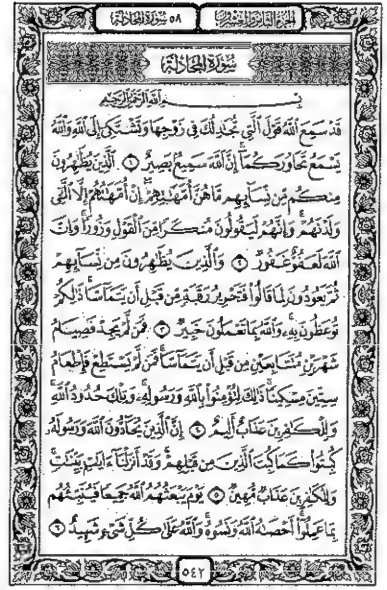 الجزء الثامن والعشرون
٥٨ سورة المجادلة
سُورَةُ المجَادلة
بِسْمِ اللَّهِ الرَّحْمَٰنِ الرَّحِيمِ
قَدْ سَمِعَ اللَّهُ قَوْلَ الَّتِي تُجَادِلُكَ فِي زَوْجِهَا وَتَشْتَكِي إِلَى اللَّهِ وَاللَّهُ
يَسْمَعُ تَحَاوُرَكُمَا إِنَّ اللَّهَ سَمِيعٌ بَصِيرٌ ١ الَّذِينَ يُظَاهِرُونَ
مِنكُم مِّن نِّسَائِهِم مَّا هُنَّ أُمَّهَاتِهِمْ إِنْ أُمَّهَاتُهُمْ إِلَّا الَّٰئِي
وَلَدْنَهُمْ وَإِنَّهُمْ لَيَقُولُونَ مُنكَرًا مِّنَ الْقَوْلِ وَزُورًا وَإِنَّ
اللَّهَ لَعَفُوٌّ غَفُورٌ ٢ وَالَّذِينَ يُظَاهِرُونَ مِن نِّسَائِهِمْ
ثُمَّ يَعُودُونَ لِمَا قَالُوا فَتَحْرِيرُ رَقَبَةٍ مِّن قَبْلِ أَن يَتَمَاسَّا ذَٰلِكُمْ
تُوعَظُونَ بِهِ وَاللَّهُ بِمَا تَعْمَلُونَ خَبِيرٌ ٣ فَمَن لَّمْ يَجِدْ فَصِيَامُ
شَهْرَيْنِ مُتَتَابِعَيْنِ مِن قَبْلِ أَن يَتَمَاسَّا فَمَن لَّمْ يَسْتَطِعْ فَإِطْعَامُ
سِتِّينَ مِسْكِينًا ذَٰلِكَ لِتُؤْمِنُوا بِاللَّهِ وَرَسُولِهِ وَتِلْكَ حُدُودُ اللَّهِ
وَلِلْكَافِرِينَ عَذَابٌ أَلِيمٌ ٤ إِنَّ الَّذِينَ يُحَادُّونَ اللَّهَ وَرَسُولَهُ
كُبِتُوا كَمَا كُبِتَ الَّذِينَ مِن قَبْلِهِمْ وَقَدْ أَنزَلْنَا آيَاتٍ بَيِّنَاتٍ
وَلِلْكَافِرِينَ عَذَابٌ مُّهِينٌ ٥ يَوْمَ يَبْعَثُهُمُ اللَّهُ جَمِيعًا فَيُنَبِّئُهُم
بِمَا عَمِلُوا أَحْصَاهُ اللَّهُ وَنَسُوهُ وَاللَّهُ عَلَىٰ كُلِّ شَيْءٍ شَهِيدٌ ٦
٥٤٢